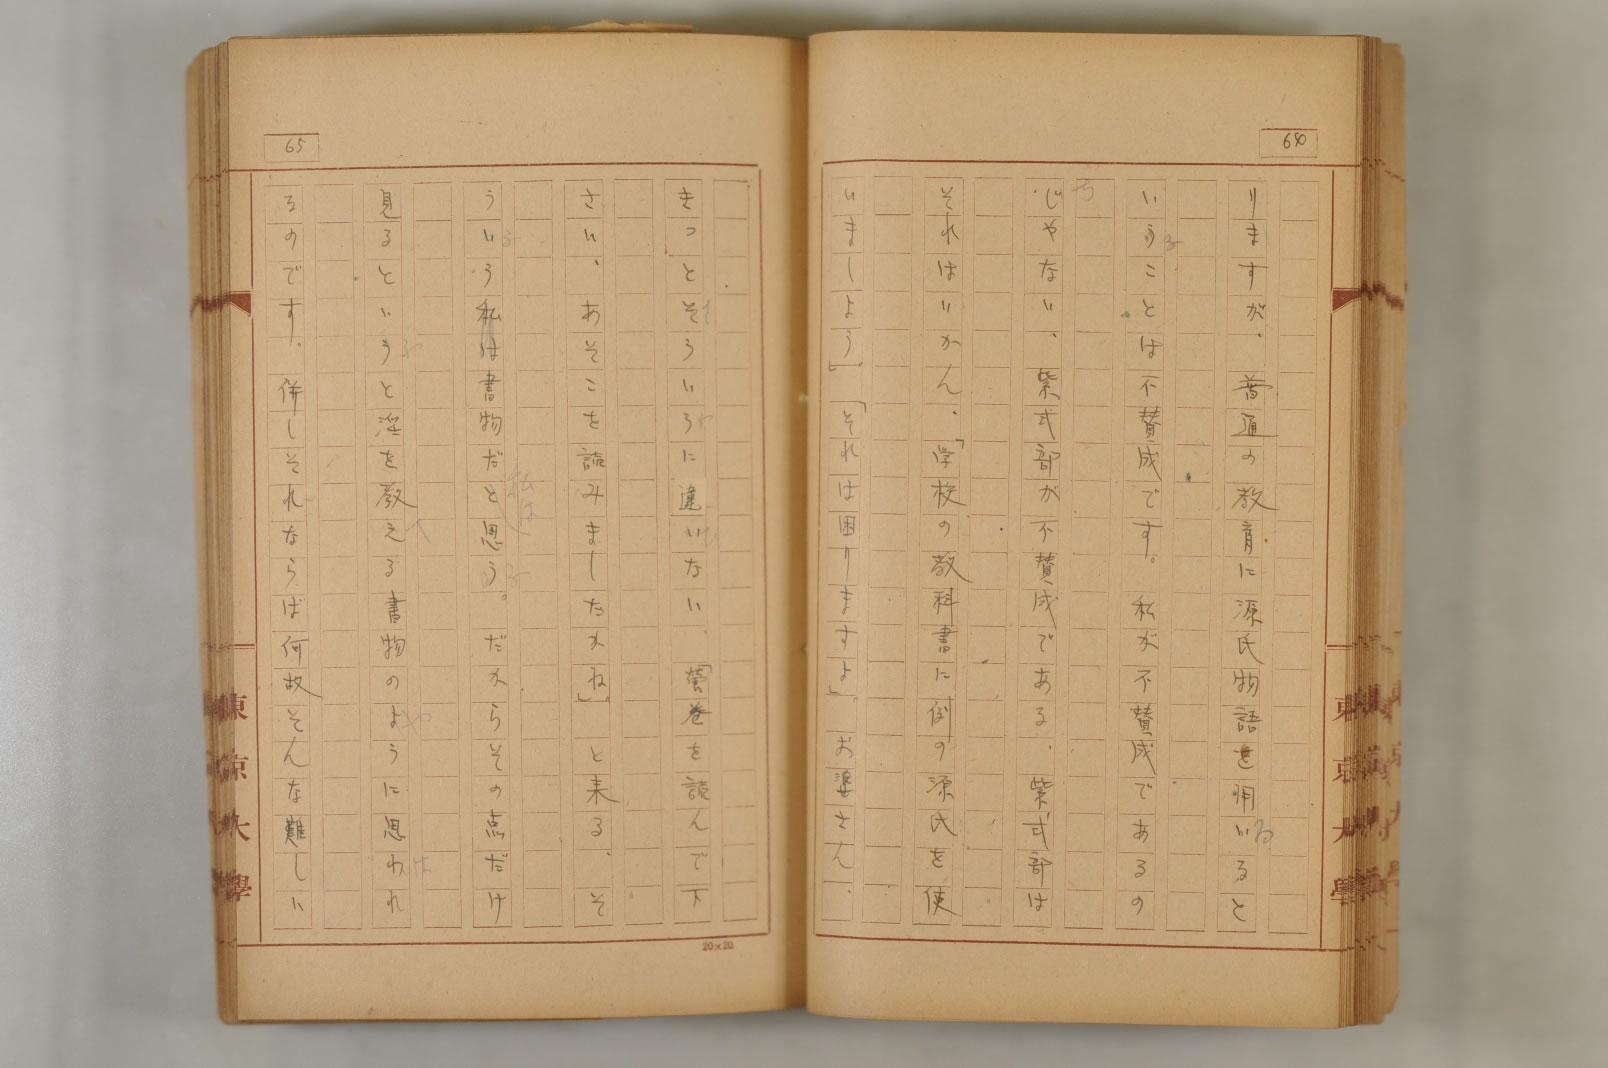 64
りますが、普通の教育に源氏物語を用いると
いうことは不賛成です。私が不賛成であるの
じゃない、紫式部が不賛成である、紫式部は
それはいかん、「学校の教科書に例の源氏を使
いましよう」「それは困りますよ」。お婆さん、
65
きっとそういうに違いない、「螢巻を読んで下
さい、あそこを読みましたかね」と来る、そ
ういう私は書物だと思う。だからその点だけ
私は
見るというと淫を教える書物のように思われ
るのです。併しそれならば何故そんな難しい
20×20
東京大學
東京大學